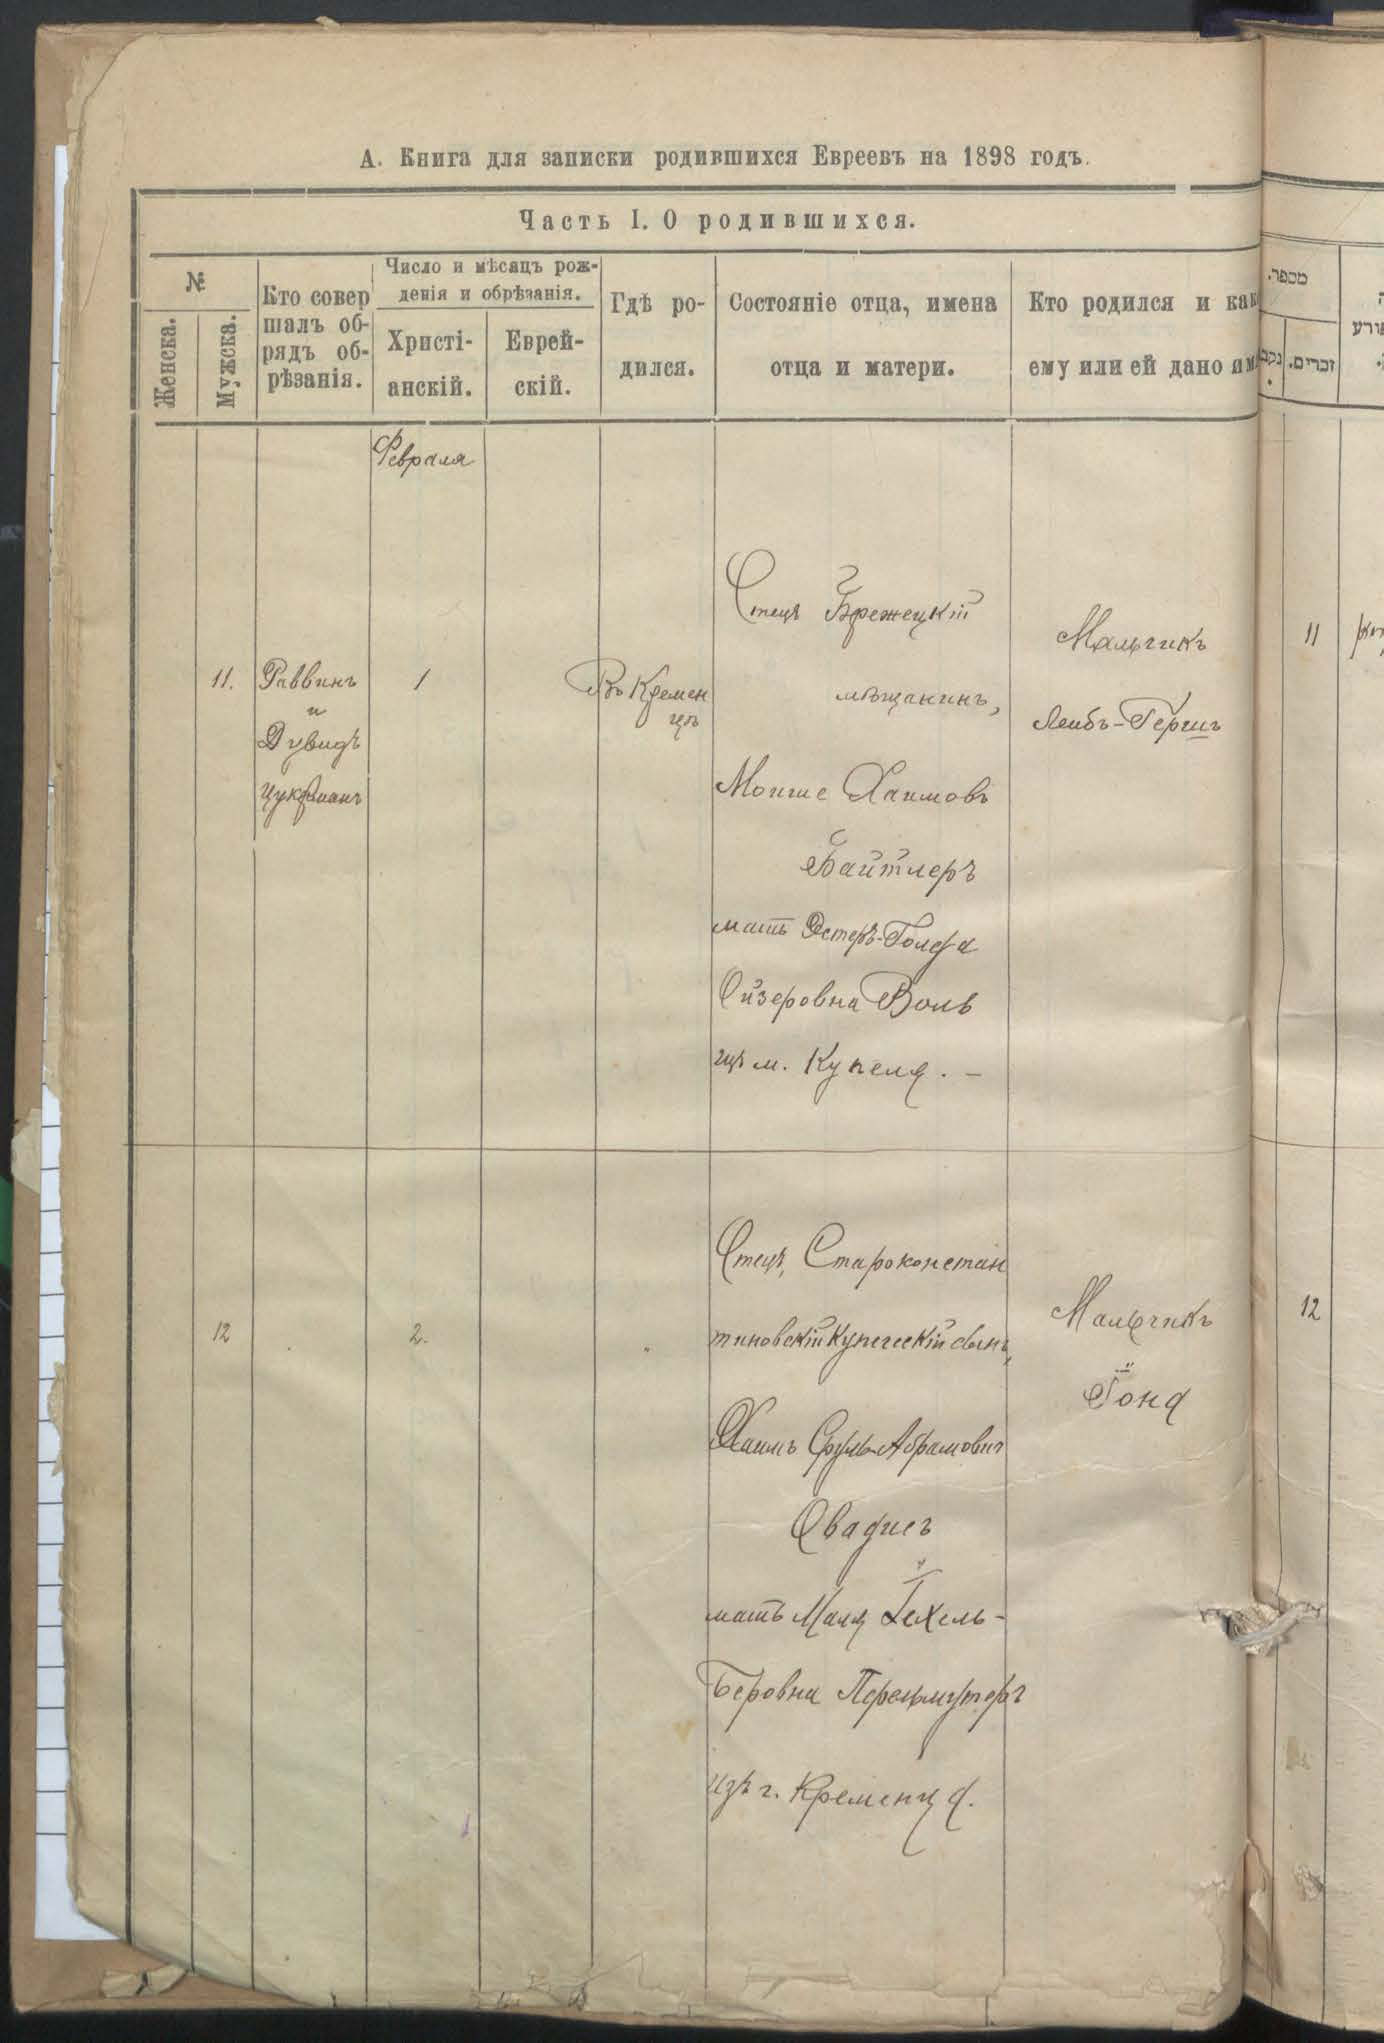 А. Книга для записки родившихся Евреевъ на 1898 годъ.
Часть I. О родившихся.
№
Женска.
Мужска.
Кто совер
шалъ об-
рядъ об-
рѣзанія.
Число и мѣсяцъ рож-
денія и обрѣзанія.
Христі-
анскій.
Еврей-
скій.
Гдѣ ро-
дился.
Состояніе отца, имена
отца и матери.
Кто родился и как
ему или ей дано им
מספר.
זכרים.
נקב
Февраля
11.
Раввинъ
и
Дувидъ
Цукерманъ
1
Въ Кремен
цѣ
Отецъ Брежецкій
мѣщанинъ,
Моише Хаимовъ
Байтлеръ
мать Эстеръ-Голда
Ойзеровна Воль
изъ м. Купеля. –
Мальчикъ
Леибъ-Гершъ
11
12
2.
Отецъ, Староконстан
тиновскій купеческій сынъ,
Хаимъ Сруль Абрамович
Овадисъ
мать Маля Іехель-
Беровна Перельмутеръ
изъ г. Кременца.
Мальчикъ
Іона
12